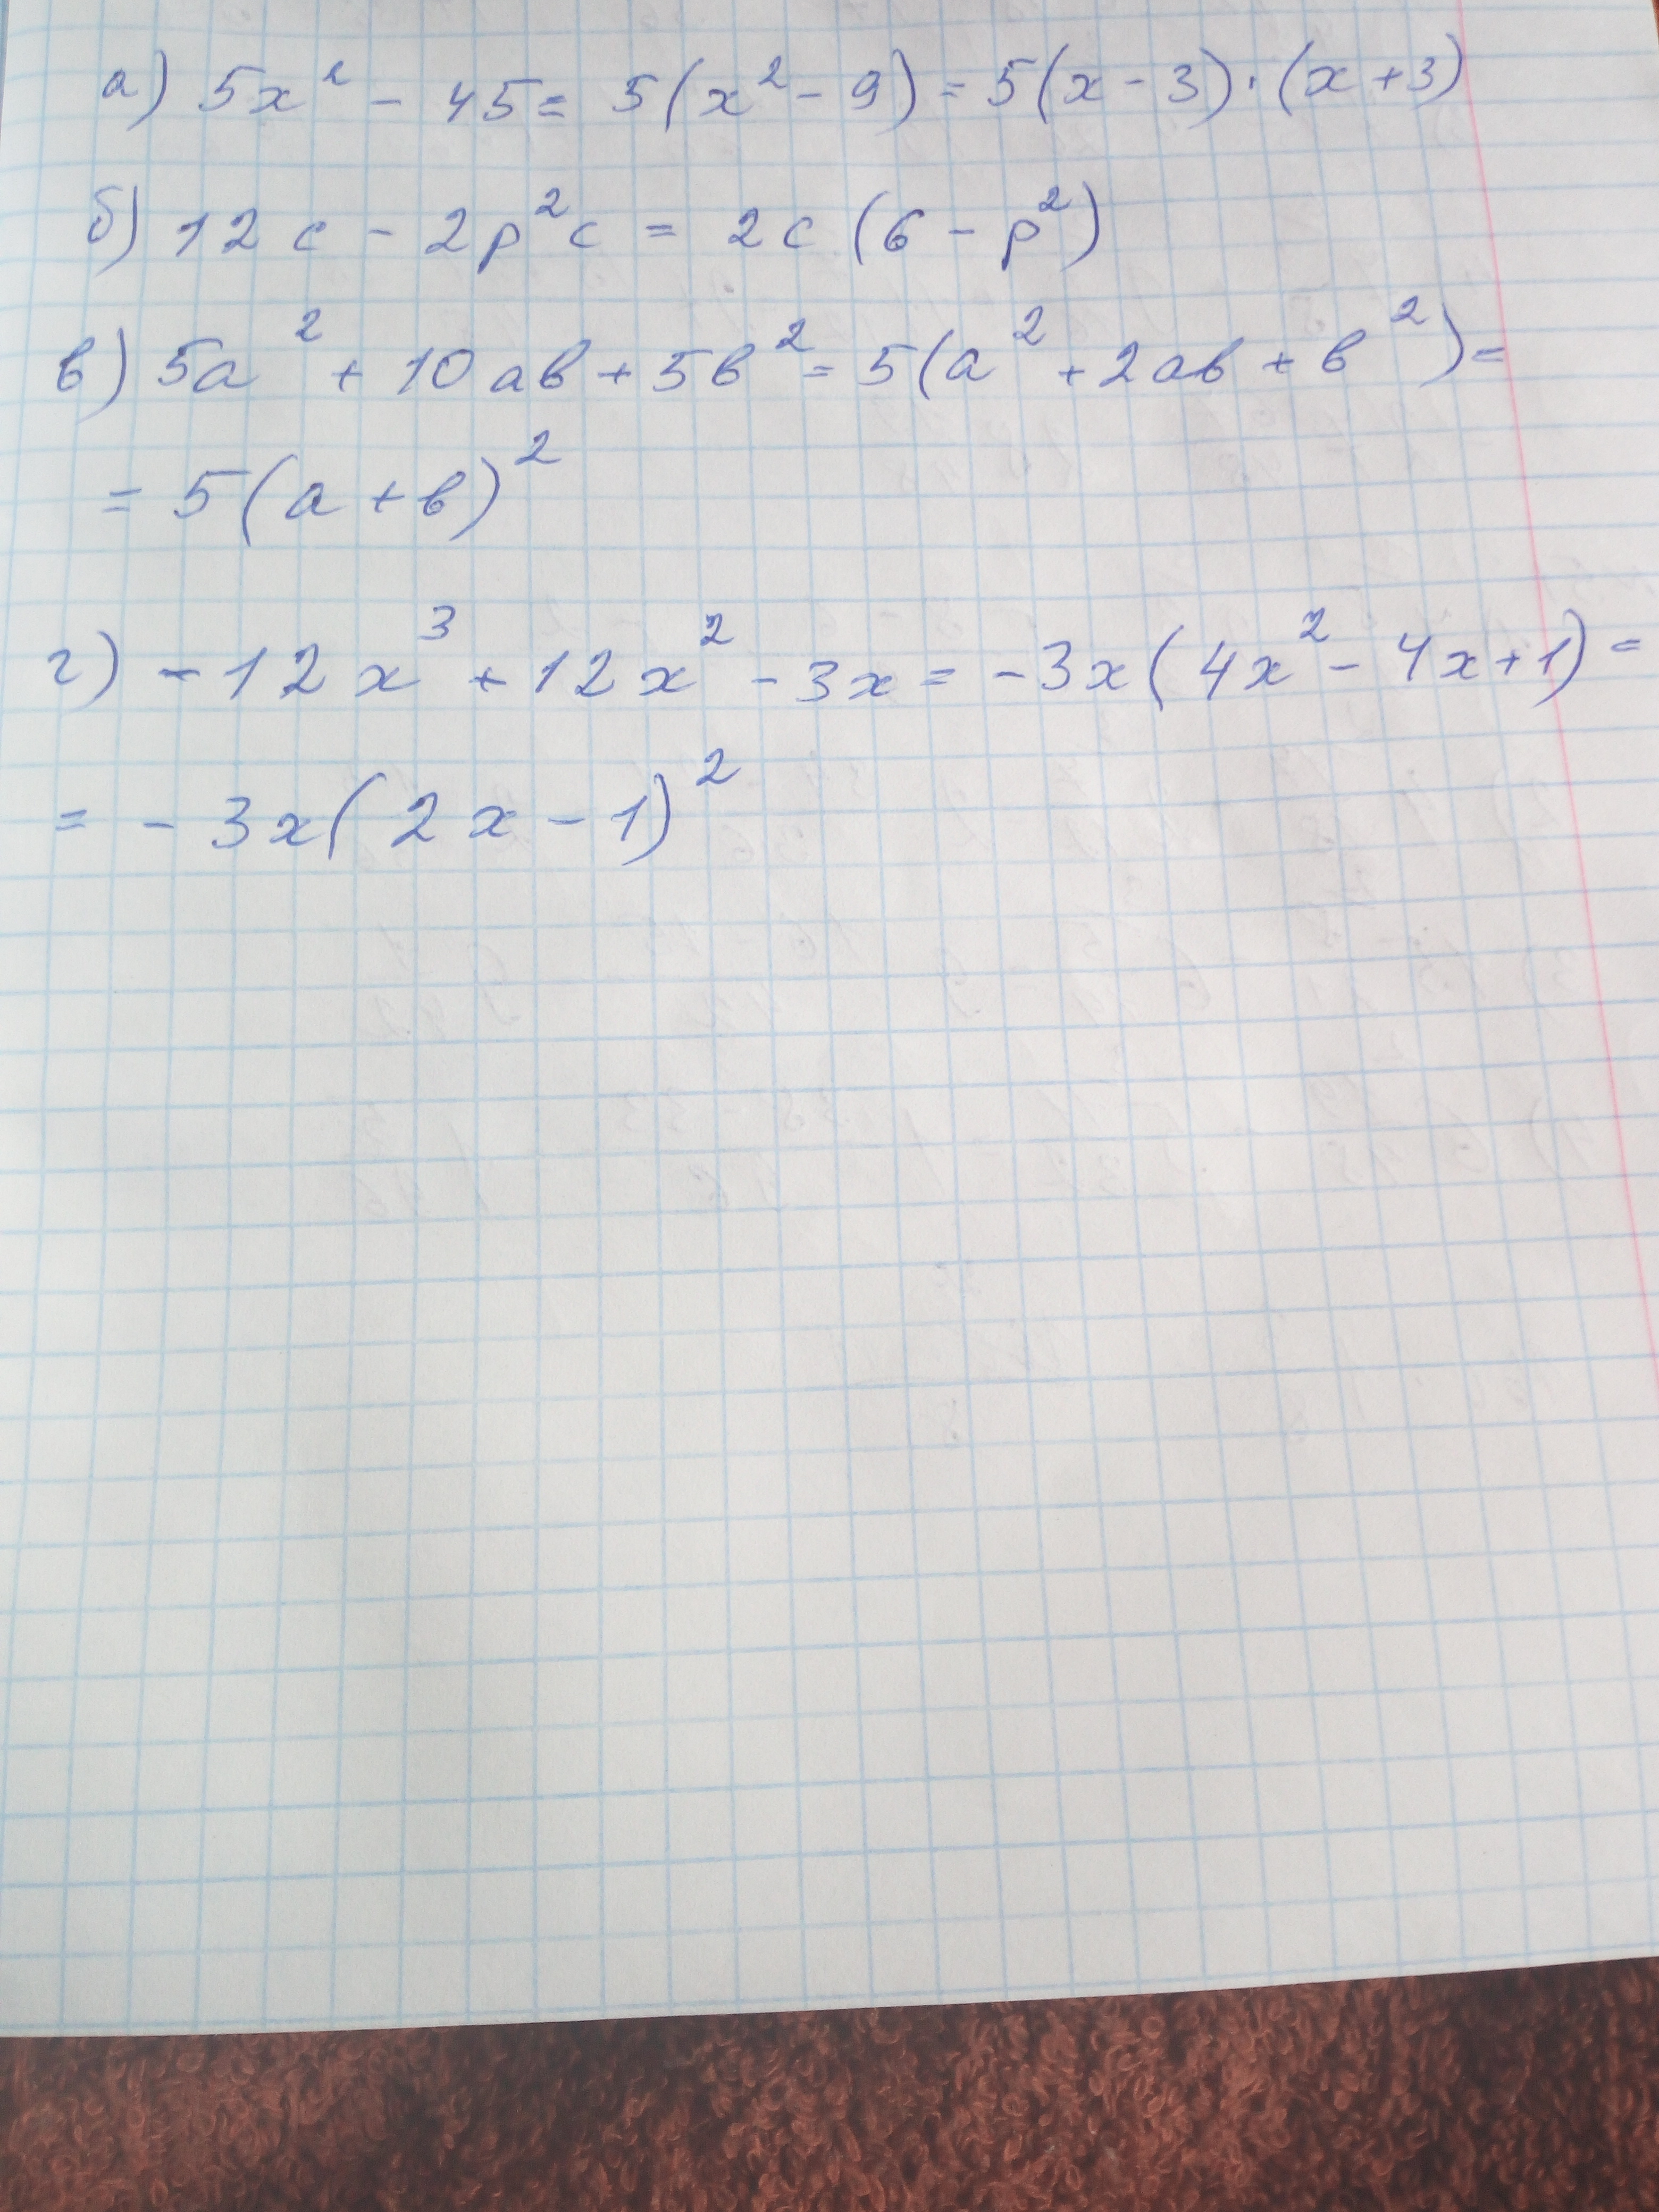 а) 5x² - 45 = 5(x² - 9) = 5(x - 3)·(x + 3)
б) 12c - 2p²c = 2c (6 - p²)
в) 5a² + 10ab + 5b² = 5(a² + 2ab + b²) =
= 5(a + b)²
г) - 12x³ + 12x² - 3x = - 3x(4x² - 4x + 1) =
= - 3x(2x - 1)²